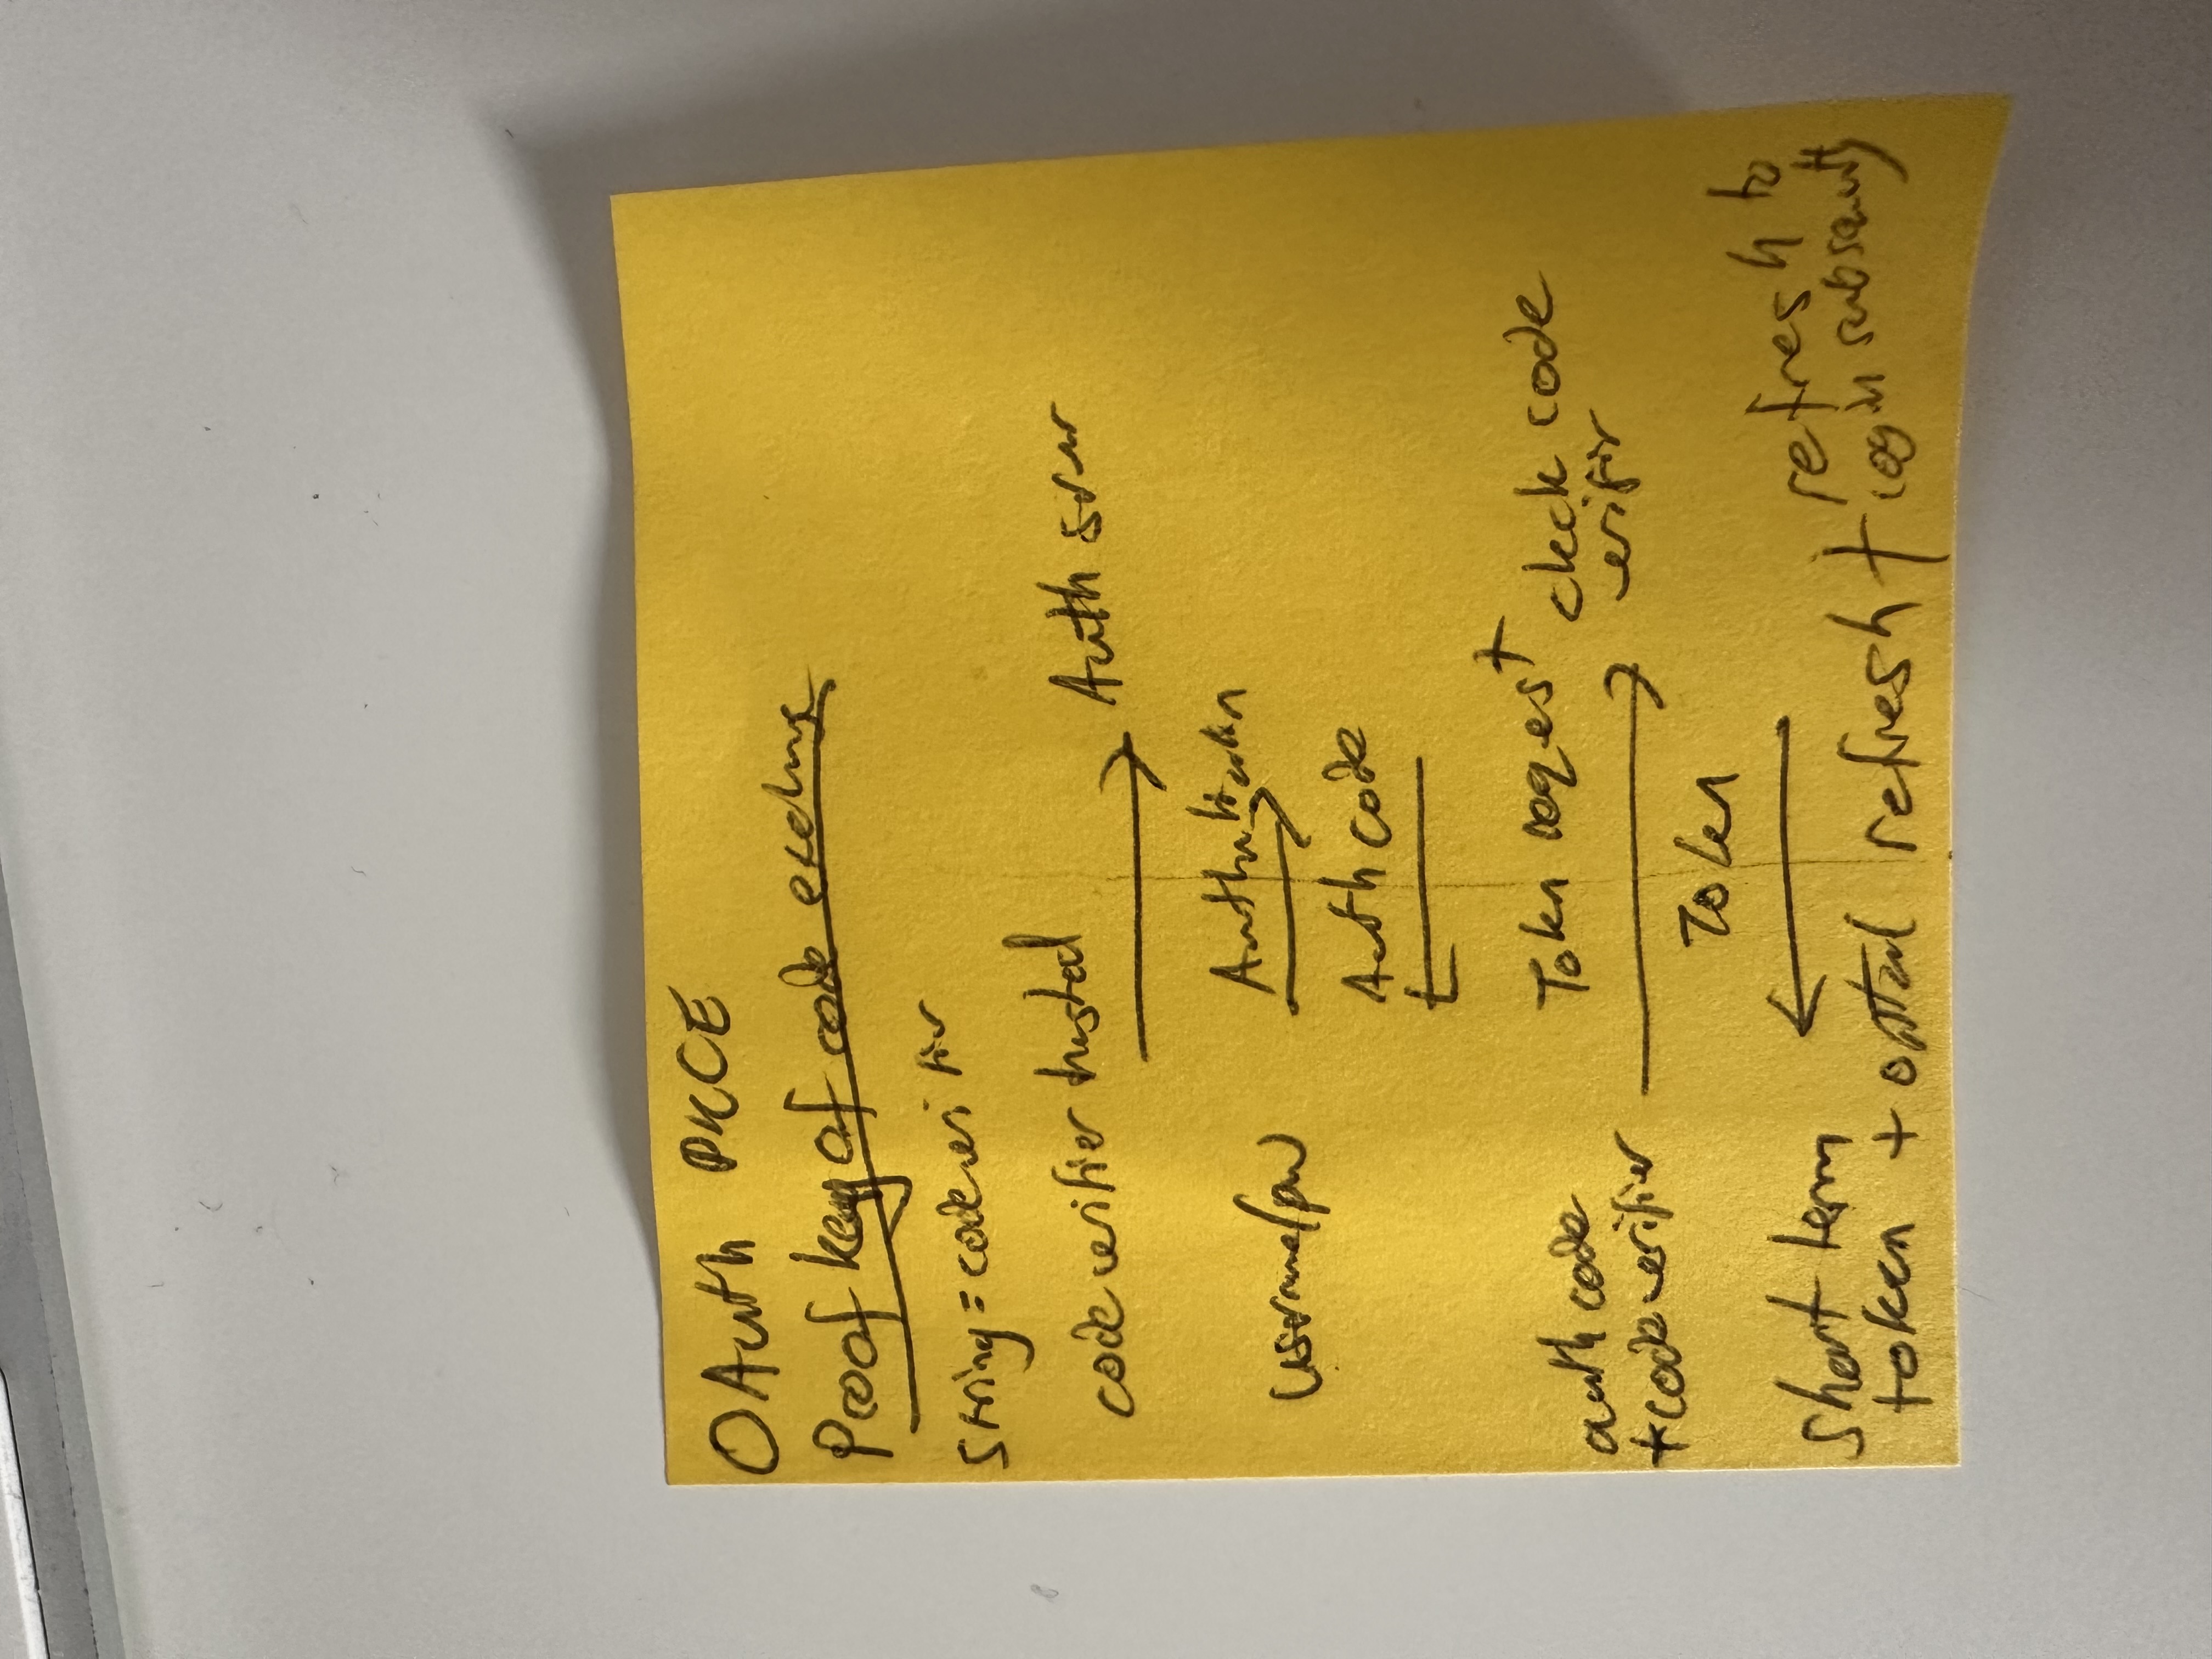 OAuth PKCE
Proof key of code exchange
string = code verifier
code verifier hashed
Auth server
Authentication
username/pw
Auth code
Token request
auth code
+ code verifier
check code
verifier
Token
short term
token + optional refresh +
refresh to
login subsequently